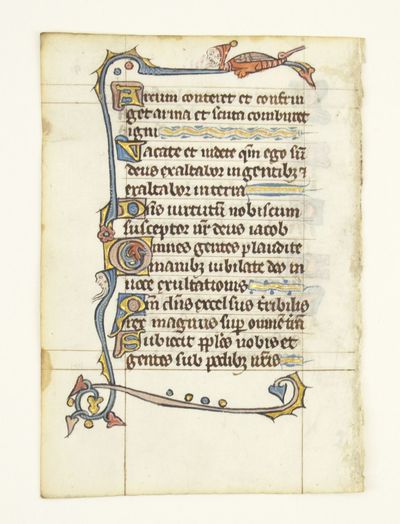 Arcum conteret et confrin
get arma et scuta comburet
igni
Vacate et videte qm ego sū
deus exaltabor in gentibꝫ ⁊
exaltabor in terra
Dns̄ uirtutū nobiscum
susceptor nr̄ deus iacob
Omnes gentes plaudite
manibꝫ iubilate deo in
uoce exultationis
Qm̄ dn̄s excelsus t̄ribilis
rex magnus sup̄ omnē t̄rā
Subiecit pplōs nobis et
gentes sub pedibꝫ nr̄is